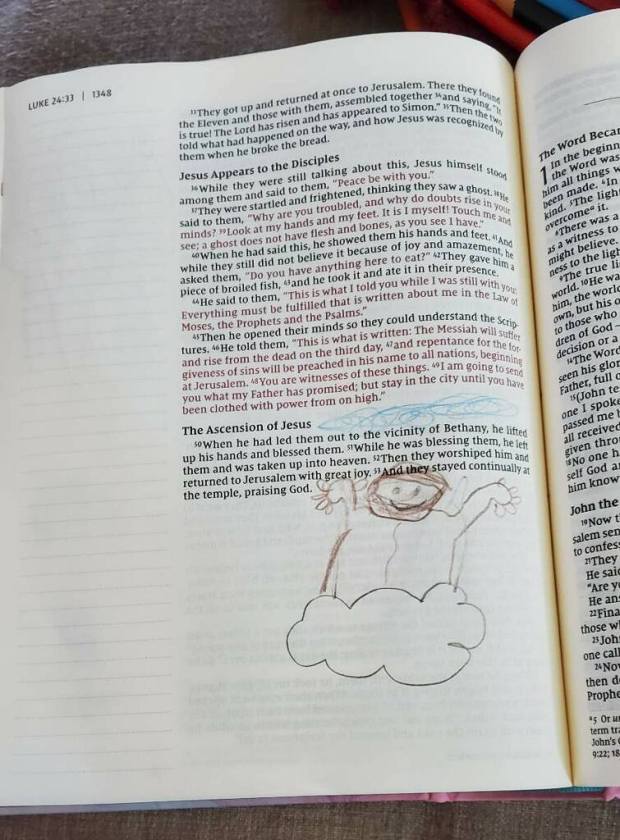 LUKE 24:33 | 1348
³³They got up and returned at once to Jerusalem. There they found
the Eleven and those with them, assembled together ³⁴and saying, "It
is true! The Lord has risen and has appeared to Simon." ³⁵Then the two
told what had happened on the way, and how Jesus was recognized by
them when he broke the bread.
Jesus Appears to the Disciples
³⁶While they were still talking about this, Jesus himself stood
among them and said to them, "Peace be with you."
³⁷They were startled and frightened, thinking they saw a ghost. ³⁸He
said to them, "Why are you troubled, and why do doubts rise in your
minds? ³⁹Look at my hands and my feet. It is I myself! Touch me and
see; a ghost does not have flesh and bones, as you see I have."
⁴⁰When he had said this, he showed them his hands and feet. ⁴¹And
while they still did not believe it because of joy and amazement, he
asked them, "Do you have anything here to eat?" ⁴²They gave him a
piece of broiled fish, ⁴³and he took it and ate it in their presence.
⁴⁴He said to them, "This is what I told you while I was still with you:
Everything must be fulfilled that is written about me in the Law of
Moses, the Prophets and the Psalms."
⁴⁵Then he opened their minds so they could understand the Scrip-
tures. ⁴⁶He told them, "This is what is written: The Messiah will suffer
and rise from the dead on the third day, ⁴⁷and repentance for the for-
giveness of sins will be preached in his name to all nations, beginning
at Jerusalem. ⁴⁸You are witnesses of these things. ⁴⁹I am going to send
you what my Father has promised; but stay in the city until you have
been clothed with power from on high."
The Ascension of Jesus
⁵⁰When he had led them out to the vicinity of Bethany, he lifted
up his hands and blessed them. ⁵¹While he was blessing them, he left
them and was taken up into heaven. ⁵²Then they worshiped him and
returned to Jerusalem with great joy. ⁵³And they stayed continually at
the temple, praising God.
The Word Becam
1 In the beginn
the Word was
him all things w
been made. ⁴In
kind. ⁵The light
overcome it.
⁶There was a
as a witness to
might believe.
ness to the ligh
⁹The true li
world. ¹⁰He wa
him, the world
own, but his o
to those who
dren of God –
decision or a
¹⁴The Word
seen his glor
Father, full o
¹⁵(John te
one I spoke
passed me b
all received
given throu
¹⁸No one h
self God a
him know
John the
¹⁹Now t
salem sen
to confess
²¹They
He said
"Are yo
He ans
²²Fina
those wh
²³John
one call
²⁴Now
then d
Prophe
ᵃ5 Or un
term tra
John's G
9:22; 18